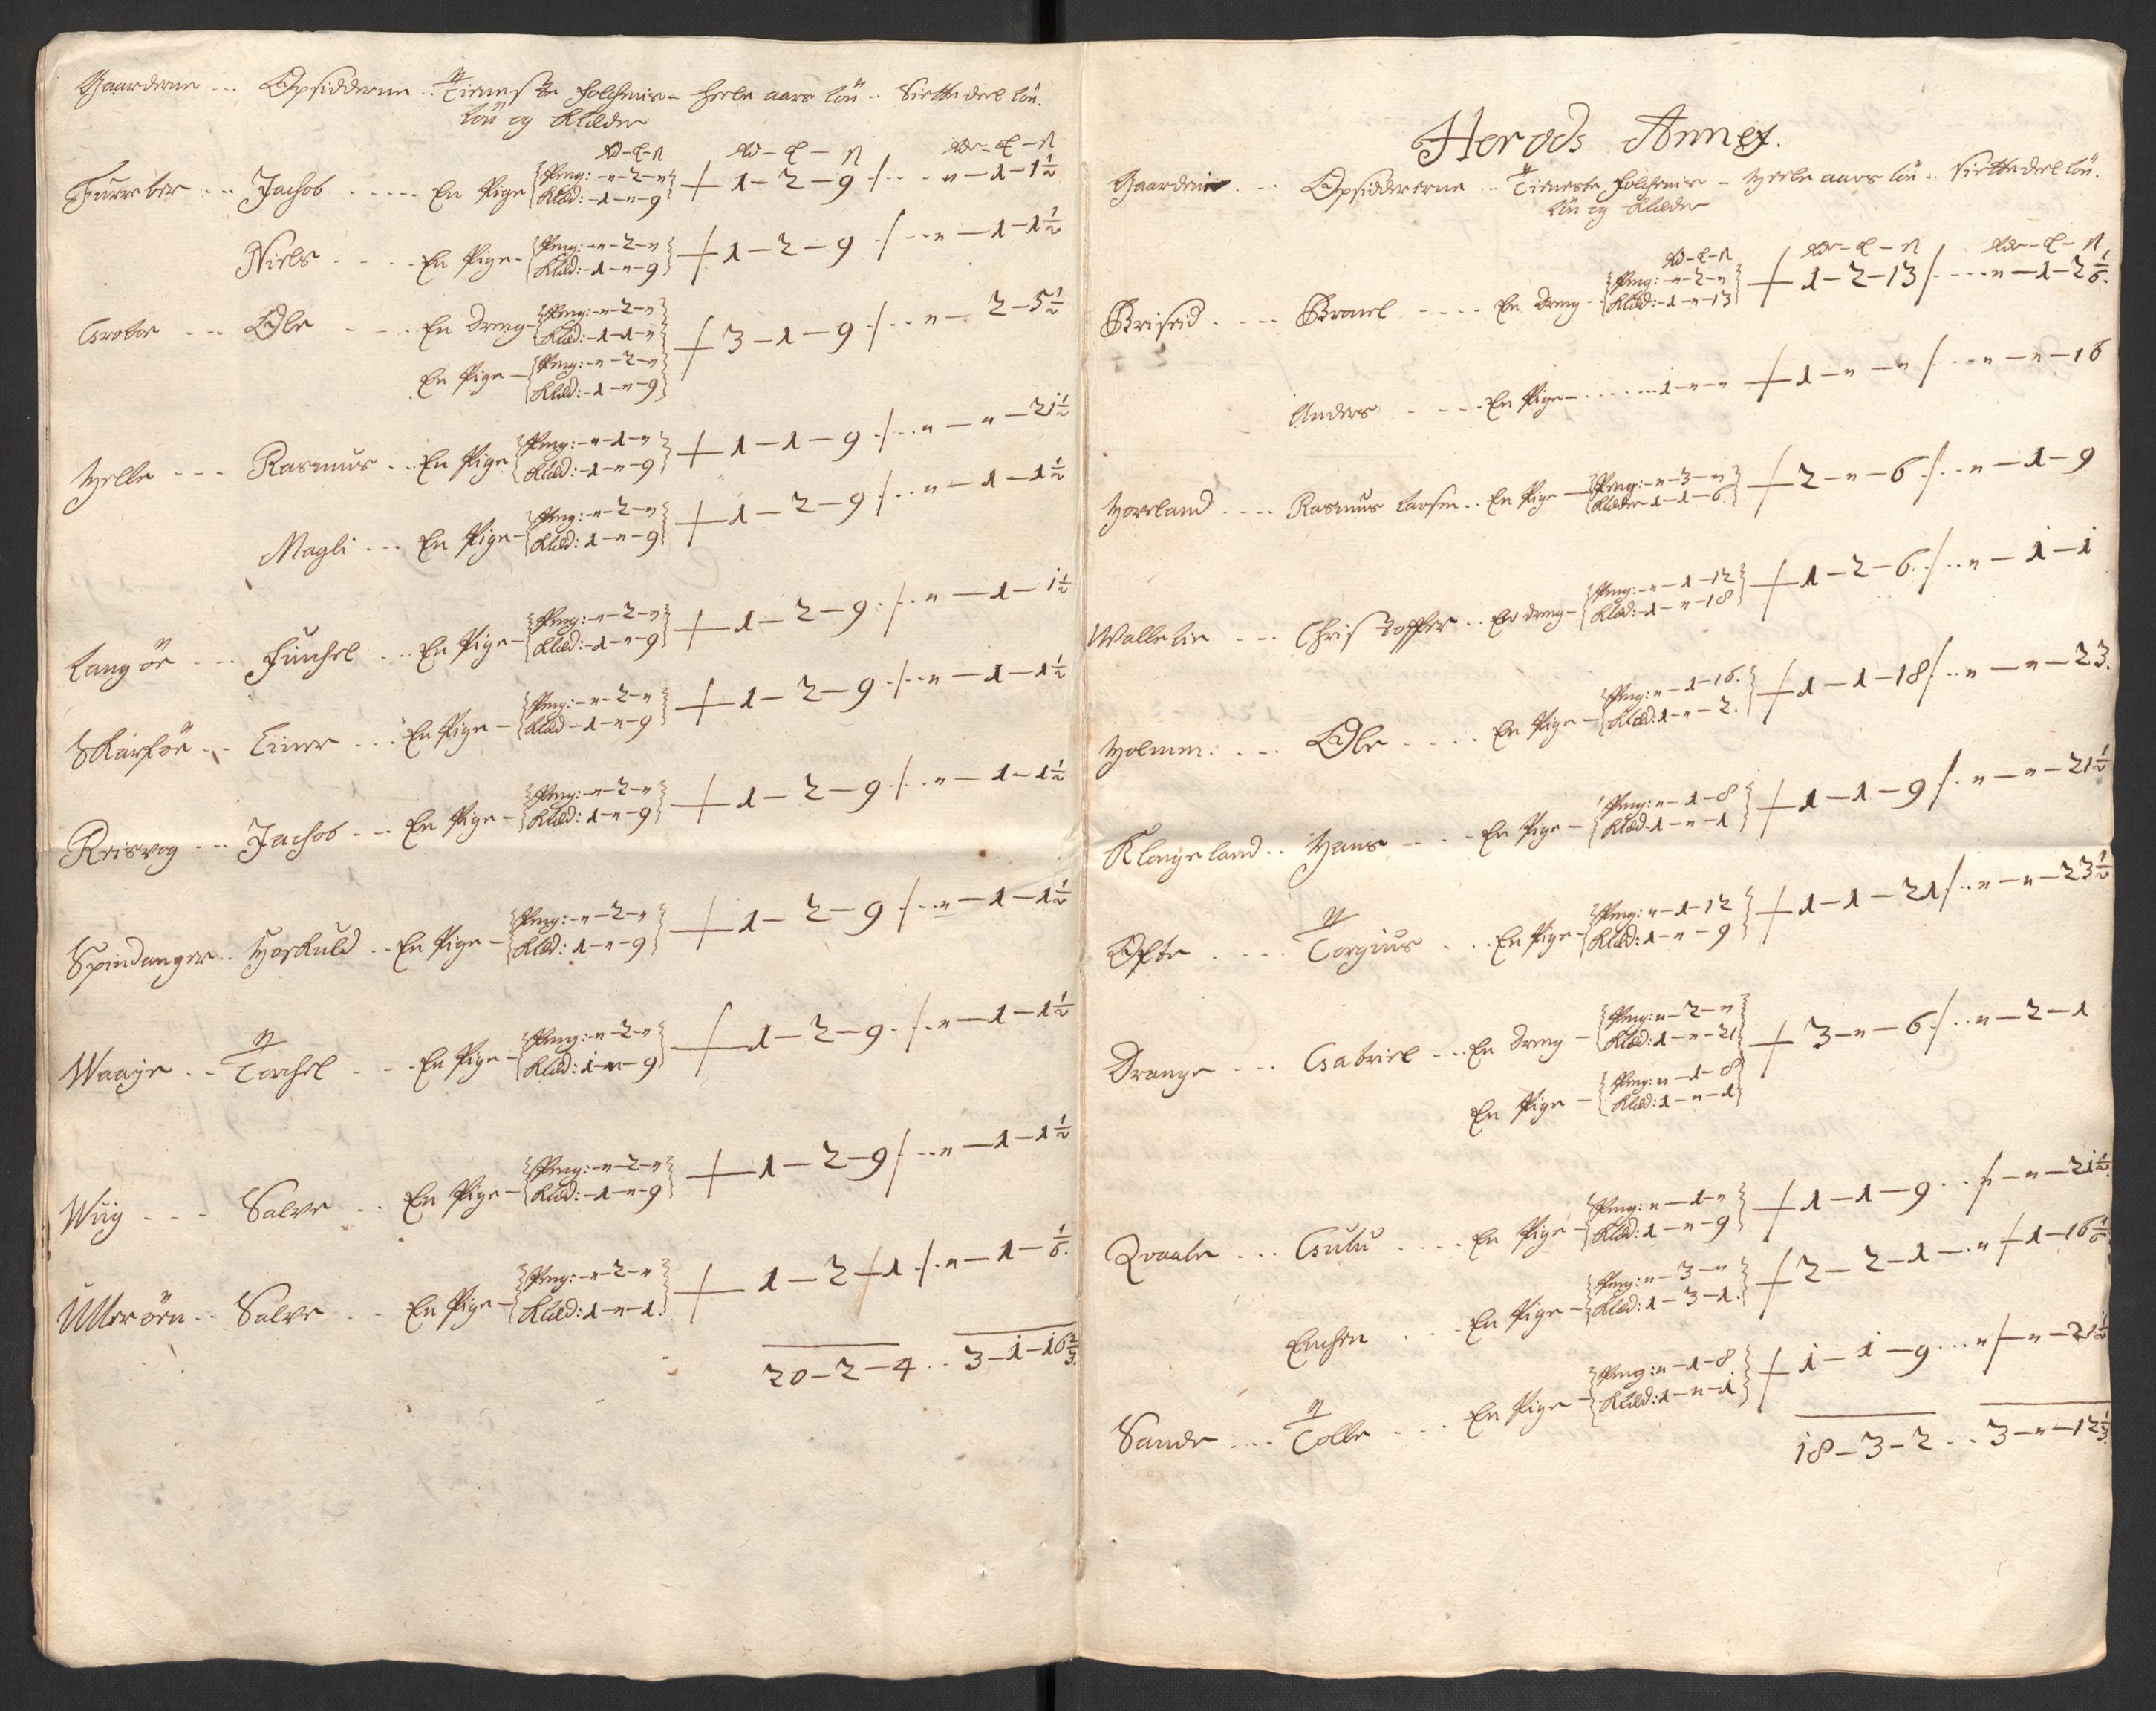 Gaarderne --- Opsidderne .. Tieneste folchenis - heele aars lön .. Siette deel lön.
lön og klæder
Rd - ₰ - ß Rd - ₰ - ß Rd - ₰ - ß
Furreber --- Jachob ----- En Pige {Peng: -"-2-" Klæd: -1-"-9} 1-2-9 /--- "-1-1½
Niels ----- En Pige {Peng: -"-2-" Klæd: -1-"-9} 1-2-9 /--- "-1-1½
Grotte --- Ole ---- En dreng {Peng: -"-2-" Klæd: -1-1-"}
En Pige {Peng: -"-2-" Klæd: -1-"-9} 3-1-9 /--- "-2-5½
Helle --- Rasmus .. En Pige {Peng: -"-1-" Klæd: -1-"-9} 1-1-9 /.. "-"-21½
Magli --- En Pige {Peng: -"-2-" Klæd: 1-"-9} 1-2-9 /.. "-1-1½
Langöe --- Finchel .. En Pige {Peng: -"-2-" Klæd: -1-"-9} 1-2-9 /.. "-1-1½
Skarföe --- Einer ... En Pige {Peng: -"-2-" Klæd -1-"-9} 1-2-9 /.. "-1-1½
Reisvog --- Jachob --- En Pige {Peng: -"-2-" Klæd: 1-"-9} 1-2-9 /.. "-1-1½
Spindanger .. Hoskuld .. En Pige {Peng: -"-2-" Klæd: 1-"-9} 1-2-9 /.. "-1-1½
Waage .. Torchel --- En Pige {Peng: -"-2-" Klæd: 1-"-9} 1-2-9 /.. "-1-1½
Wiig --- Salve .. En Pige {Peng: -"-2-" Klæd: -1-"-9} 1-2-9 /.. "-1-1½
Ullerøen .. Salve .. En Pige {Peng: -"-2-" Klæd: 1-"-1} 1-2-1 /.. "-1-⅙
20-2-4 .. 3-1-16⅔
Herods Annex.
Gaarderne --- Opsidderne ... Tieneste folchenis - Heele aars lön .. Siette deel lön.
lön og klæder
Rd - ₰ - ß Rd - ₰ - ß Rd - ₰ - ß
Briseid ---- Bronel ---- En dreng {Peng: -"-2-" Klæd: -1-"-13} 1-2-13 /---- "-1-2⅙
Anders ---- En Pige ------- 1-"-" 1-"-" /--- "-"-16
Hovland ---- Rasmus Larsen .. En Pige {Peng: -"-3-" Klæder 1-1-6} 2-"-6 /.. "-1-9
Wallelie --- Christopher .. En dreng {Peng: -"-1-12 Klæd: -1-"-18} 1-2-6 /.. "-1-1
Holmen. --- Ole ---- En Pige {Peng: "-1-16 Klæd: 1-"-2} 1-1-18 /.. "-"-23
Klongeland .. Hans --- En Pige {Peng: "-1-8 Klæd: 1-"-1} 1-1-9 /.. "-"-21½
Ofte ---- Torgius .. En Pige {Peng: "-1-12 Klæd: 1-"-9} 1-1-21 /.. "-"-23½
Drange --- Gabriel --- En dreng {Peng: "-2-" Klæd: 1-"-21}
En Pige {Peng: "-1-8 Klæd: 1-"-1} 3-"-6 /.. "-2-1
Qvaale --- Gulu ---- En Pige {Peng: "-1-" Klæd: 1-"-9} 1-1-9 .. /-"-21½
Enchen --- En Pige {Peng: "-3-" Klæd: 1-3-1} 2-2-1 -- "-1-16⅙
Sande --- Tolle --- En Pige {Peng: "-1-8 Klæd: 1-"-1} 1-1-9 ... "-"-21½
18-3-2 .. 3-"-12⅓